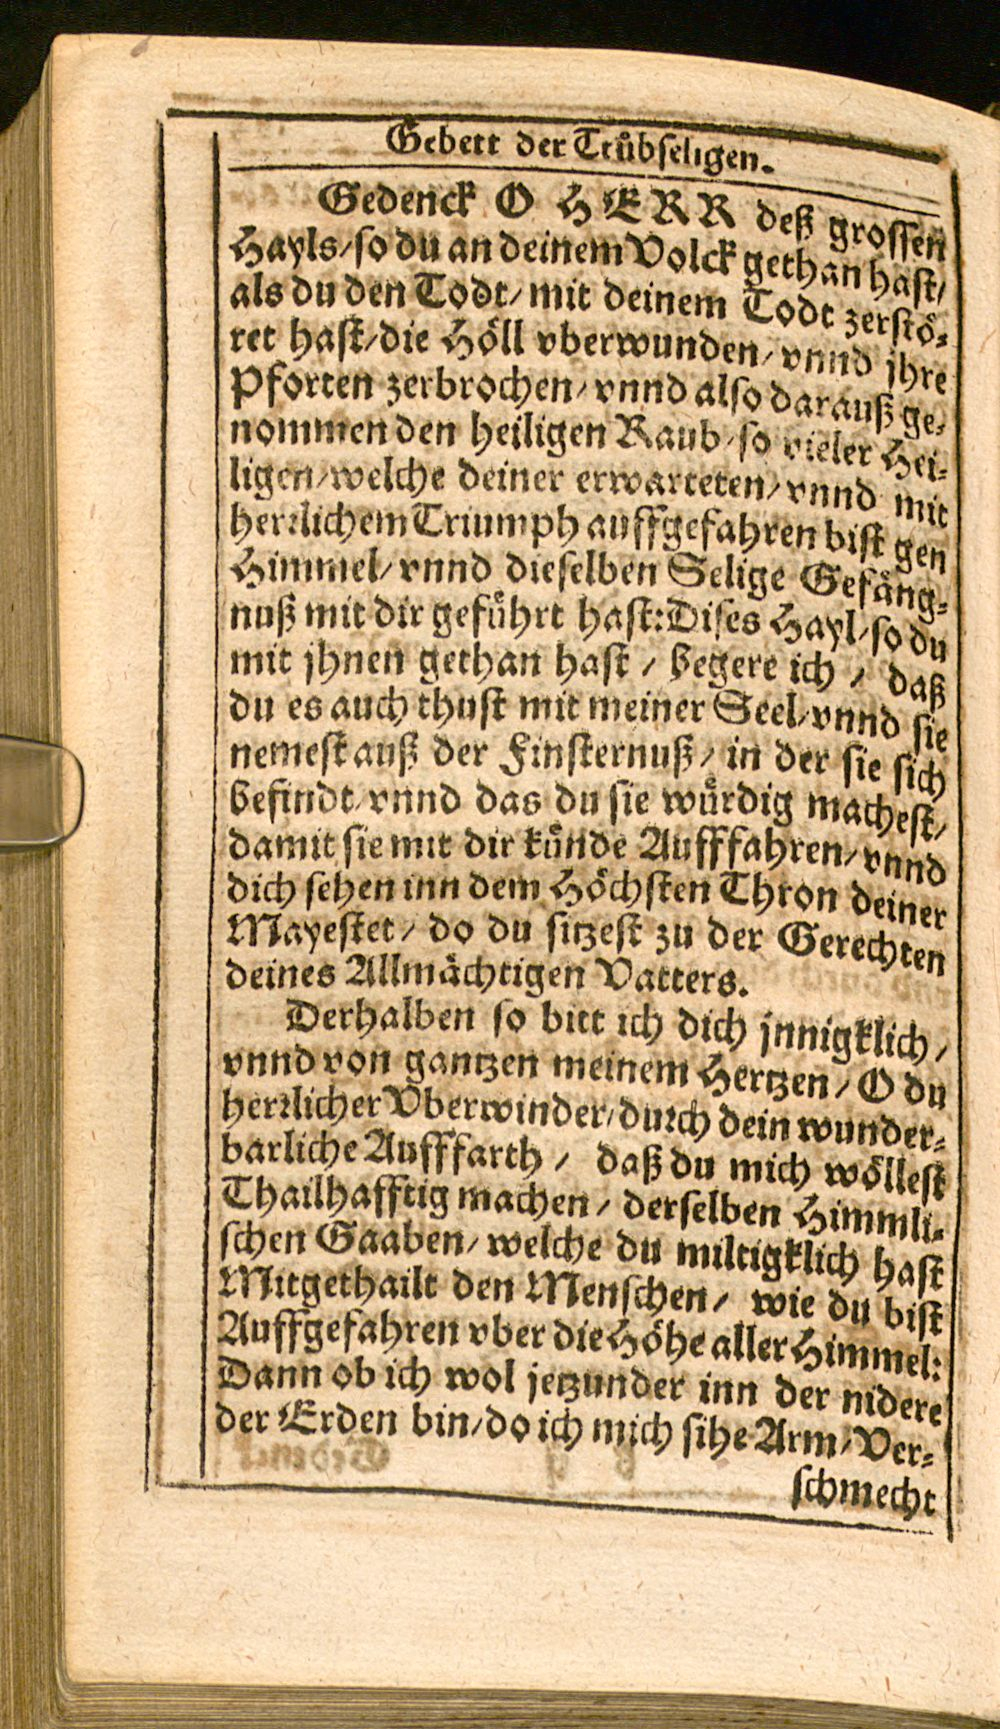 Gebett der Trübseligen.
Gedenck O HERR deß grossen
Hayls/so du an deinem Volck gethan hast/
als du den Todt/mit deinem Todt zerstö-
ret hast/die Höll vberwunden/vnnd jhre
Pforten zerbrochen/vnnd also darauß ge-
nommen den heiligen Raub/so vieler Hei-
ligen/welche deiner erwarteten/vnnd mit
herrlichem Triumph auffgefahren bist gen
Himmel/vnnd dieselben Selige Gefäng-
nuß mit dir geführt hast: Dises Hayl/so du
mit jhnen gethan hast / begere ich / daß
du es auch thust mit meiner Seel/vnnd sie
nemest auß der Finsternuß/in der sie sich
befindt/vnnd das du sie würdig machest/
damit sie mit dir künde Aufffahren/vnnd
dich sehen inn dem Höchsten Thron deiner
Mayestet/ do du sitzest zu der Gerechten
deines Allmächtigen Vatters.
Derhalben so bitt ich dich jnnigklich/
vnnd von gantzen meinem Hertzen/O du
herrlicher Vberwinder/durch dein wunder-
barliche Aufffarth / daß du mich wöllest
Thailhafftig machen/ derselben Himmli-
schen Gaaben/welche du miltigklich hast
Mitgethailt den Menschen/ wie du bist
Auffgefahren vber die Höhe aller Himmel:
Dann ob ich wol jetzunder inn der nidere
der Erden bin/do ich mich sihe Arm/Ver-
schmecht